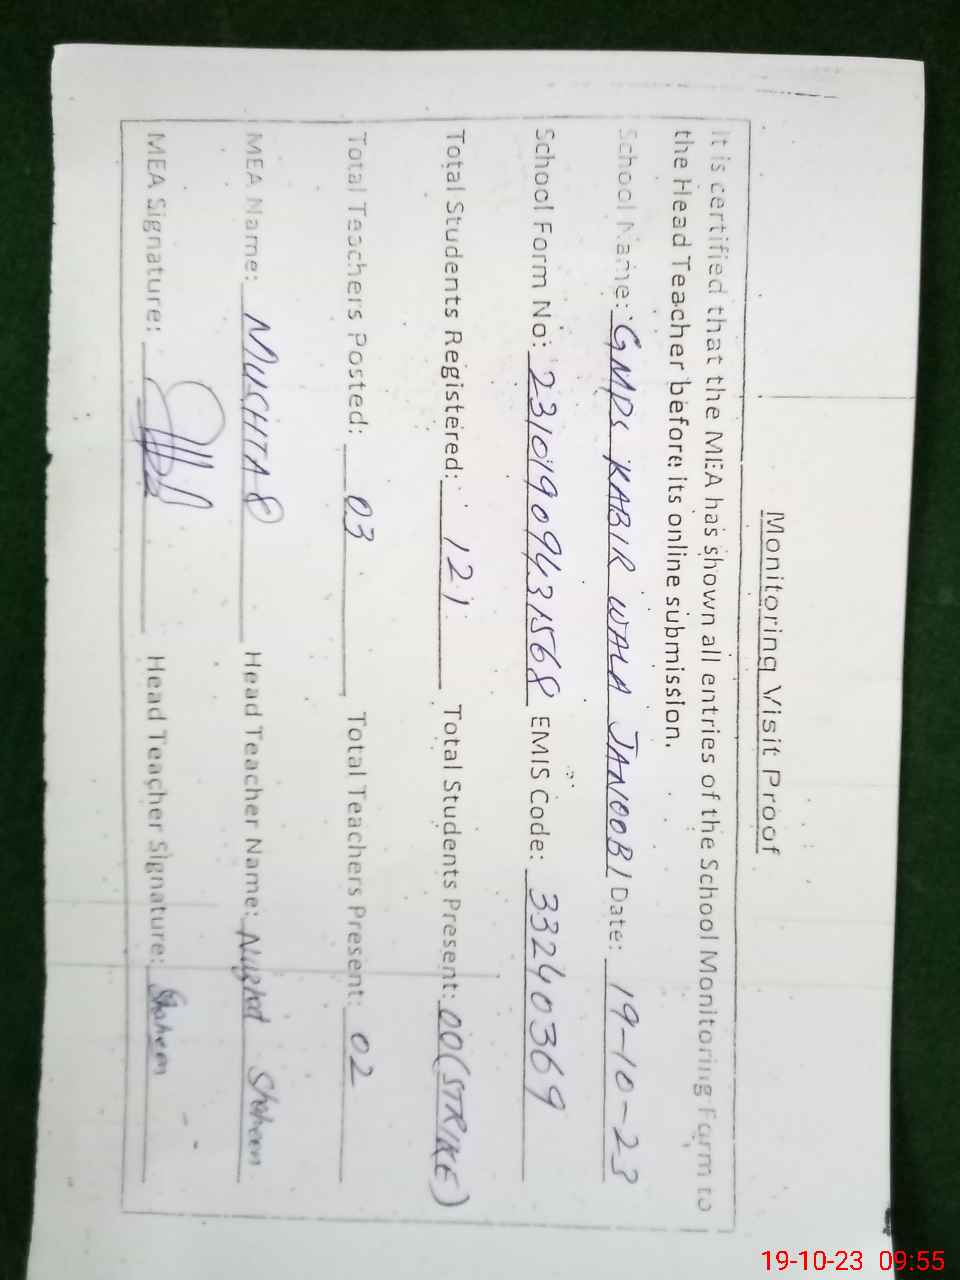 Monitoring Visit Proof
It is certified that the MEA has shown all entries of the School Monitoring Form to
the Head Teacher before its online submission.
School Name: GMPS KABIR WALA JANOOBI Date: 19-10-23
School Form No: 23101909431568 EMIS Code: 33240369
Total Students Registered: 121 Total Students Present: 00 (STRIKE)
Total Teachers Posted: 03 Total Teachers Present: 02
MEA Name: MUSHTAQ Head Teacher Name: Nuzhat Shaheen
MEA Signature: Head Teacher Signature: Shaheen
19-10-23 09:55